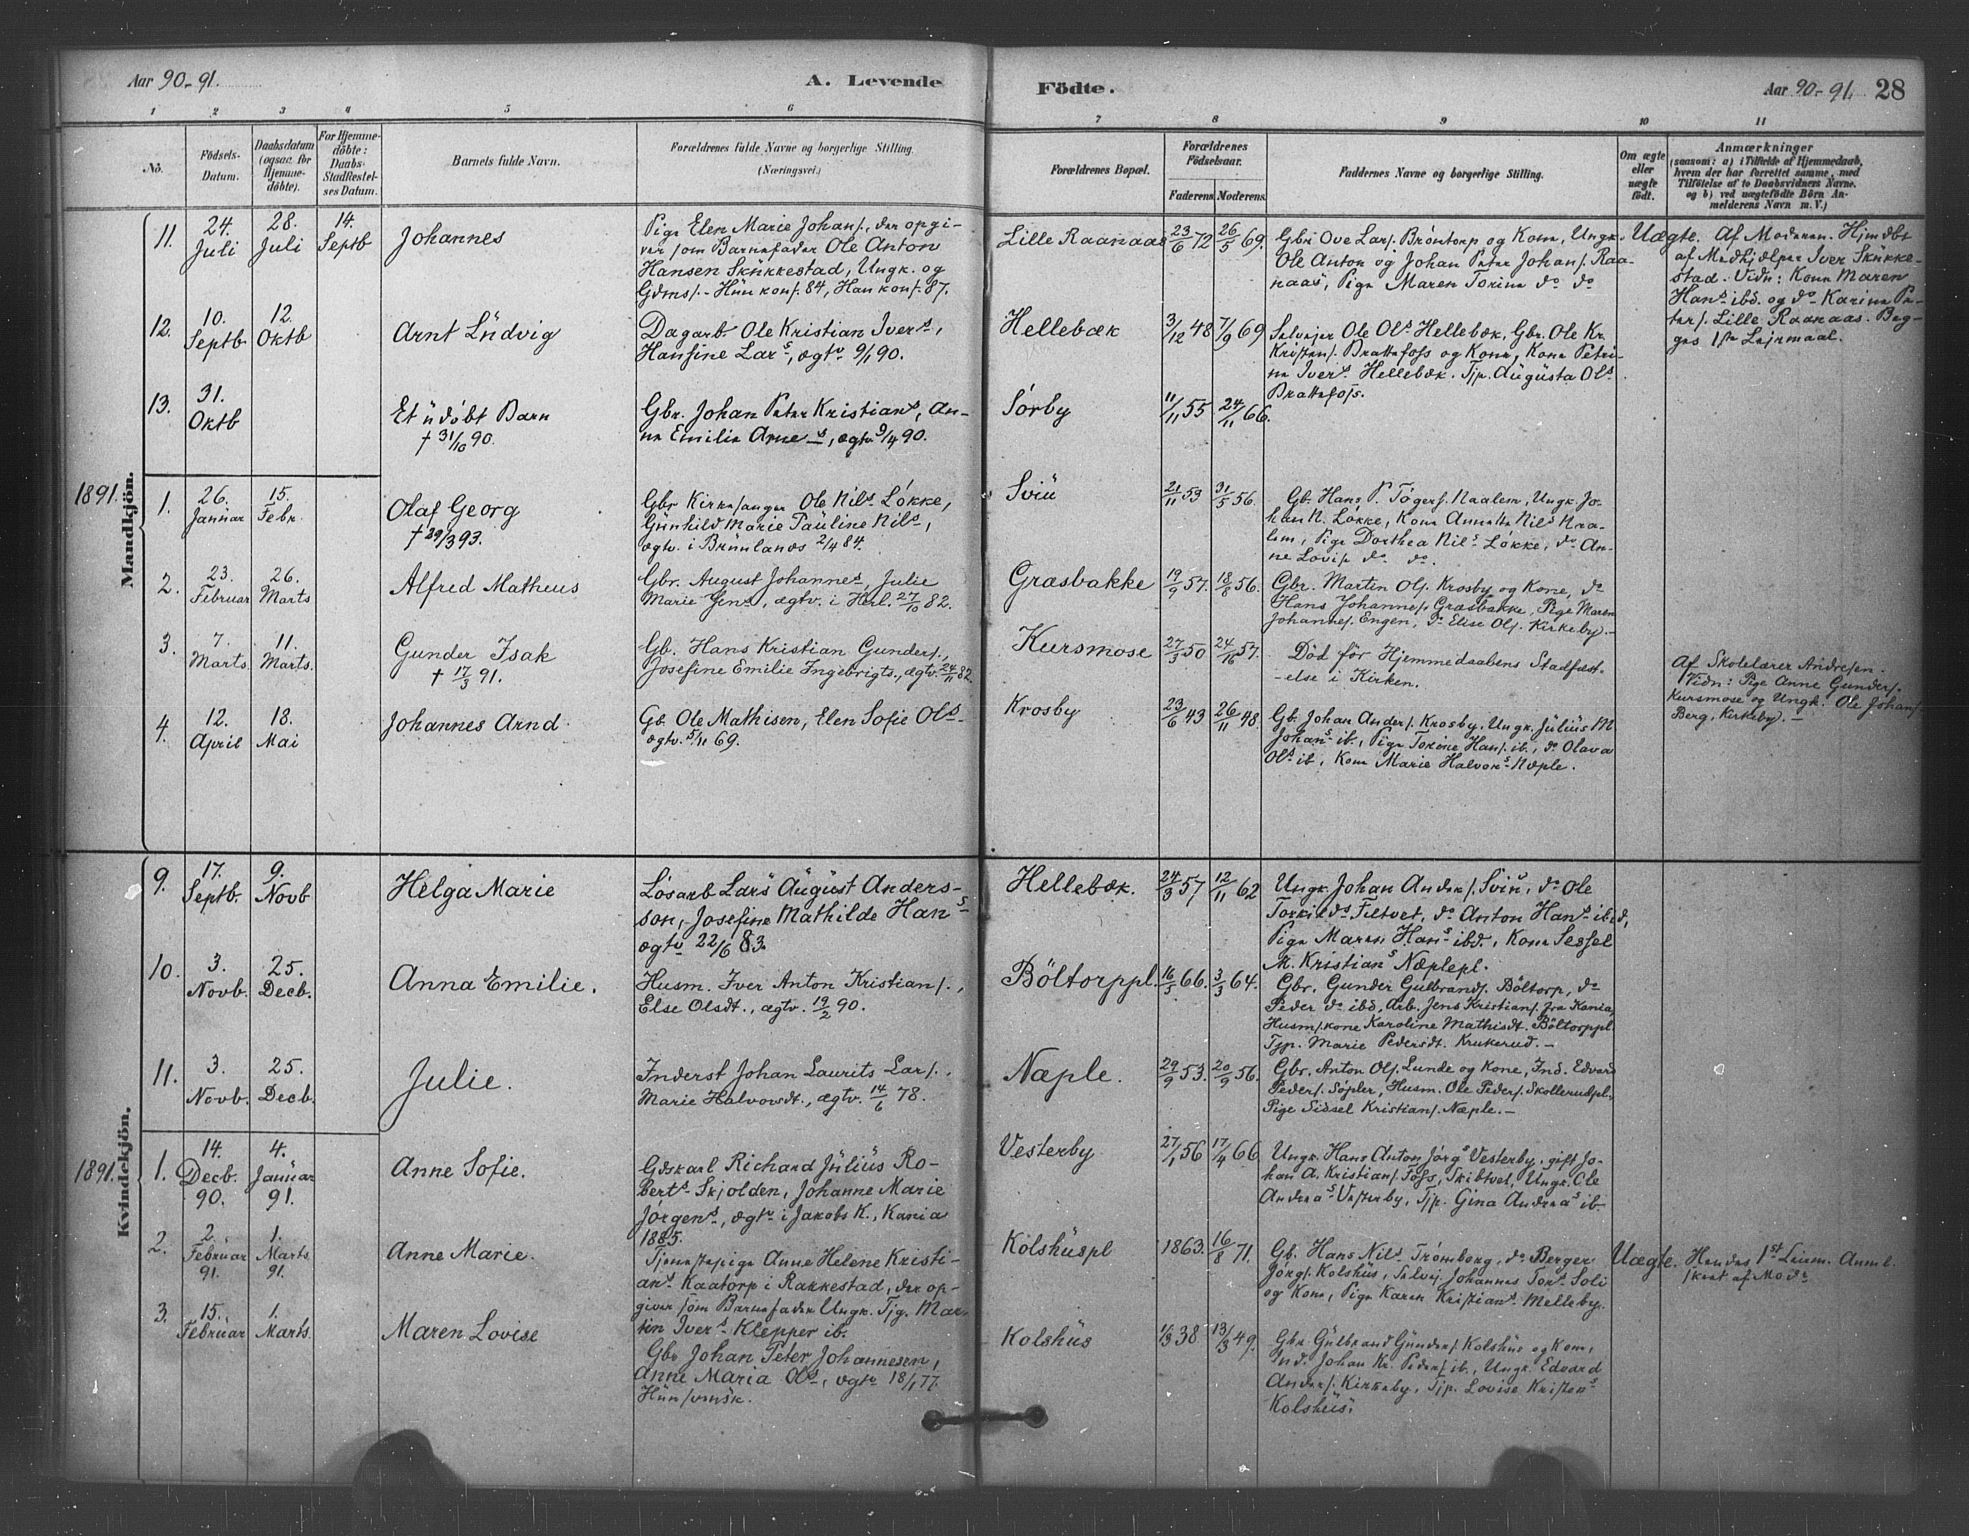 Aar 90-91.
A. Levende
Födte.
Aar 90-91.
28
1 2 3 4 5 6 7 8 9 10 11
No.
Födsels-
Datum.
Daabsdatum
(ogsaa for
Hjemme-
döbte).
For Hjemme-
döbte:
Daabs-
Stadfestel-
ses Datum.
Barnets fulde Navn.
Forældrenes fulde Navne og borgerlige Stilling.
(Næringsvei.)
Forældrenes Bopæl.
Forældrenes
Födselsaar.
Faderens. Moderens.
Faddernes Navne og borgerlige Stilling.
Om ægte
eller
uægte
født.
Anmærkninger
(saasom: a) i Tilfælde af Hjemmedaab,
hvem der har forrettet samme, med
Tilføielse af to Daabsvidners Navne.
og b) ved uægtefödte Börn An-
melderens Navn m. V.)
Mandkjön.
11.
24. Juli
28. Juli
14. Septb
Johannes
Pige Elen Marie Johans., der opgi-
ver som Barnefader Ole Anton
Hansen Skükkestad, Ungk. og
Gdms.- Hün konf. 84, Han konf. 87.
Lille Raanaas
23/6 72
26/5 69.
Gbr. Ove Lars. Bröntorp og Kone, Ungk.
Ole Anton og Johan Peter Johans. Raa-
naas, Pige Maren Torine do do
Uægte.
Af Moderen. Hjmdbt
af Medhjelper Iver Skükke-
stad. Vidn: Kone Maren
Hans ibd. og do Karine Pe-
ters. Lille Raanaas. Beg-
ges 1ste Leiermaal.
12.
10. Septb
12. Oktb
Arnt Lüdvig
Dagarb. Ole Kristian Ivers.,
Hansine Lars., ægtv. 9/1 90.
Hellebæk
3/12 48
7/9 69
Selveier Ole Ols. Hellebæk, Gbr. Ole Kr.
Kristens. Brattefoss og Kone, Kone Petri-
ne Ivers. Hellebæk. Tjp. Augusta Ols.
Brattefoss.
13.
31. Oktb
Et üdöbt Barn
† 31/10 90.
Gbr. Johan Peter Kristians., An-
ne Emilie Arnes, ægtv. 9/4 90.
Sörby
11/11 55
24/11 66.
1891.
1.
26. Januar
15. Febr.
Olaf Georg
† 29/3 93.
Gbr Kirkesanger Ole Nils. Løkke,
Günhild Marie Pauline Nils.,
ægtv. i Brünlanes 2/4 84.
Sviü
21/11 59
31/5 56.
Gb. Hans P. Tögers. Naalem, Ungk. Jo-
han N. Løkke, Kone Annette Nils. Naa-
lem, Pige Dorthea Nils. Løkke, do An-
ne Lovise do do.
2.
23. Februar
26. Marts
Alfred Matheus
Gbr. August Johannes., Julie
Marie Jens., ægtv. i Herl. 27/10 82.
Græsbakke
19/9 57.
18/8 56.
Gbr. Martin Ols. Krosby og Kone, do
Hans Johannes. Græsbakke, Pige Maren
Johannes. Engen, do Elise Ols. Kirkeby.-
3.
7. Marts.
11. Marts.
Gunder Isak
† 17/3 91.
Gb. Hans Kristian Gunders.,
Josefine Emilie Ingebrigts., ægtv. 24/11 82.
Kursmose
27/3 50
24/16 57.
Död för Hjemmedaabens Stadfæst-
-else i Kirken.
Af Skolelærer Andresen.
Vidn: Pige Anne Gunders.
Kursmose og Ungk. Ole Johans.
Berg, Kirkeby.-
4.
12. April
18. Mai
Johannes Arnd
Gb. Ole Mathisen, Elen Sofie Ols.
ægtv. 5/11 69.
Krosby
23/6 43
26/11 48.
Gb. Johan Anders. Krosby, Ungk. Jülius M
Johans. ib., Pige Torine Hans. ib., do Olava
Ols. ib, Kone Marie Halvors. Næple.
Kvindekjön.
9.
17. Septb.
9. Novb
Helga Marie
Løsarb Lars August Anders-
son, Josefine Mathilde Hans
ægtv 22/6 83.
Hellebæk.
24/3 57
12/11 62
Ungk. Johan Anders. Sviü, do Ole
Torkilds. Filtvet, do Anton Hans. ibid,
Pige Maren Hans. ibd., Kone Sessel
M. Kristians. Næplepl.
10.
3. Novb.
25. Decb.
Anna Emilie.
Husm. Iver Anton Kristians.,
Else Olsdt., ægtv. 19/2 90.
Böltorppl.
16/5 66.
3/3 64.
Gbr. Gunder Gulbrands. Böltorp, do
Peder do ibd, Arb. Jens Kristians. fra Kania,
Husms.kone Karoline Mathisdt. Böltorppl.
Tjp. Marie Pedersdt. Krukerud.-
11.
3. Novb.
25. Decb.
Julie.
Inderst Johan Laurits Lars.,
Marie Halvorsdt., ægtv. 14/6 78.
Næple.
29/9 53.
20/9 56.
Gbr. Anton Ols. Lunde og Kone, Ind. Edvard
Peders. Söpler, Husm. Ole Peders. Skollerudpl.,
Pige Sidsel Kristians. Næple.-
1891.
1.
14. Decb. 90.
4. Januar 91.
Anne Sofie.
Gdskarl Richard Jülius Ro-
berts. Skjolden, Johanne Marie
Jörgens., ægtv i Jakobs K., Kania
1885.
Vesterby
27/1 56
17/4 66
Ungk. Hans Anton Jörgs. Vesterby, gift Jo-
han A. Kristians. Foss, Skibtvet, Ungk. Ole
Andreas. Vesterby, Tjp. Gina Andreas. ib.
2.
2. Februar 91.
1. Marts 91.
Anne Marie.
Tjenestepige Anne Helene Kristi-
ans. Kaatorp i Rakkestad, der op-
giver som Barnefader Ungk. Tjg. Mar-
tin Ivers. Klepper ib.
Kolshüspl
1863.
16/8 71.
Gb. Hans Nils. Trömborg, do Berger
Jörgs. Kolshüs, Selvej. Johannes Tors. Soli
og Kone, Pige Karen Kristians. Melleby.
Uægte.
Hendes 1st Leierm. Anmel.
skeet af Modr
3.
15. Februar
1. Marts.
Maren Lovise
Gbr Johan Peter Johannesen,
Anne Maria Ols., ægtv 18/1 77.
Kolshüs
1/3 38
13/3 49.
Gbr. Gülbrand Günders. Kolshüs og Kone,
Ind. Johan Kr. Peders. ib., Ungk. Edvard
Anders. Kirkeby, Tjp. Lovise Kristens.
Kolshüs.